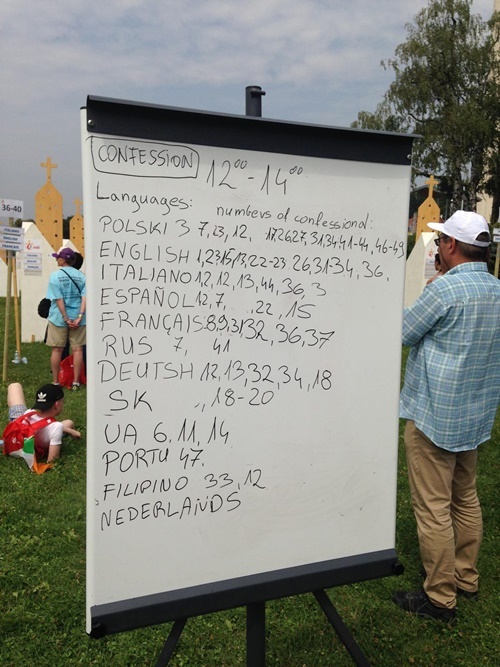 CONFESSION 12⁰⁰-14⁰⁰
Languages: numbers of confessional:
POLSKI 3 7, 13, 12, 17,26,27, 31,34,41-44, 46-49
ENGLISH 1,2,3,15,13,22-23 26,31-34, 36,
ITALIANO 12, 12, 13, 44, 36, 3
ESPAÑOL 12, 7, ,22, 15
FRANÇAIS: 8,9,31,32, 36, 37
RUS 7, 41
DEUTSH 12, 13, 32, 34, 18
SK ., 18-20
UA 6, 11, 14
PORTU 47.
FILIPINO 33, 12
NEDERLANDS
36-40